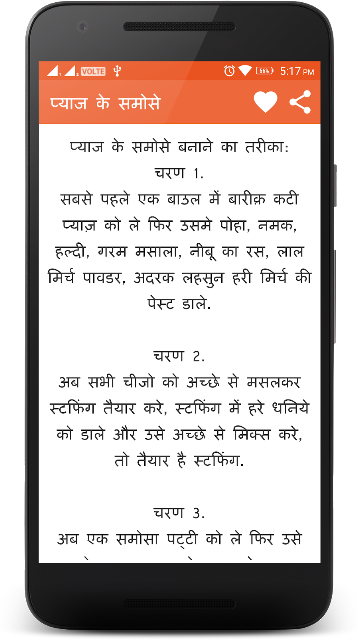 VOLTE 5:17 PM
प्याज के समोसे
प्याज के समोसे बनाने का तरीका:
चरण 1.
सबसे पहले एक बाउल में बारीक़ कटी
प्याज़ को ले फिर उसमे पोहा, नमक,
हल्दी, गरम मसाला, नीबू का रस, लाल
मिर्च पावडर, अदरक लहसुन हरी मिर्च की
पेस्ट डाले.
चरण 2.
अब सभी चीजो को अच्छे से मसलकर
स्टफिंग तैयार करे, स्टफिंग में हरे धनिये
को डाले और उसे अच्छे से मिक्स करे,
तो तैयार है स्टफिंग.
चरण 3.
अब एक समोसा पट्टी को ले फिर उसे